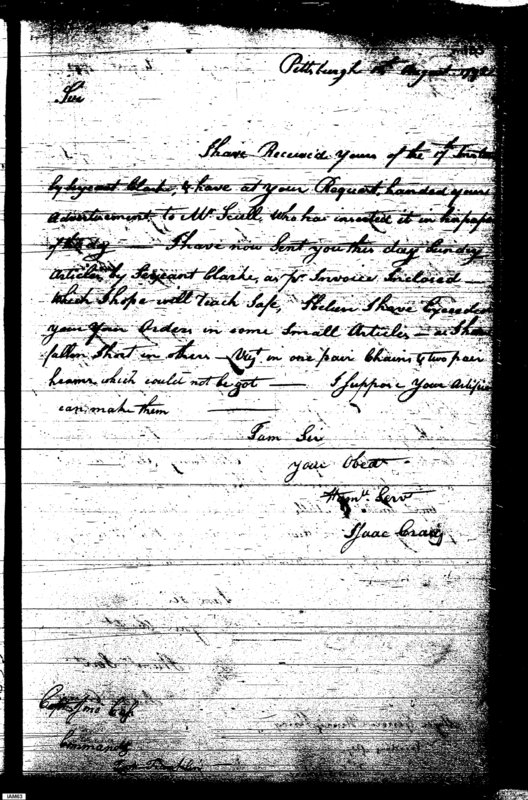 Pittsburgh August
Sir
I have Received yours of the
by Serjeant Clark, & have at your Request handed your
Advertisement to Mr. Scull, who has inserted it in his paper
of this day — I have now Sent you this day Sundry
Articles by Serjeant Clarke, as pr. Invoice Inclosed —
which I hope will reach Safe, I have Exceeded
your Orders in some Small Articles — as I have
fallen Short in others — Viz. in one pair Chains & two pair
heams which could not be got — I suppose your Artificers
can make them
I am Sir
your Obedt
Humle. Servt
Isaac Craig
Capt. Jno
Commandt
Fort Franklin
IAM63